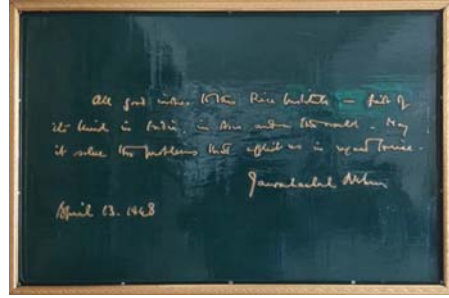 All good wishes to this Rice Institute — first of
its kind in India, in Asia and in the world. May
it solve the problems that afflict us in regard to rice.
Jawaharlal Nehru
April 13. 1948